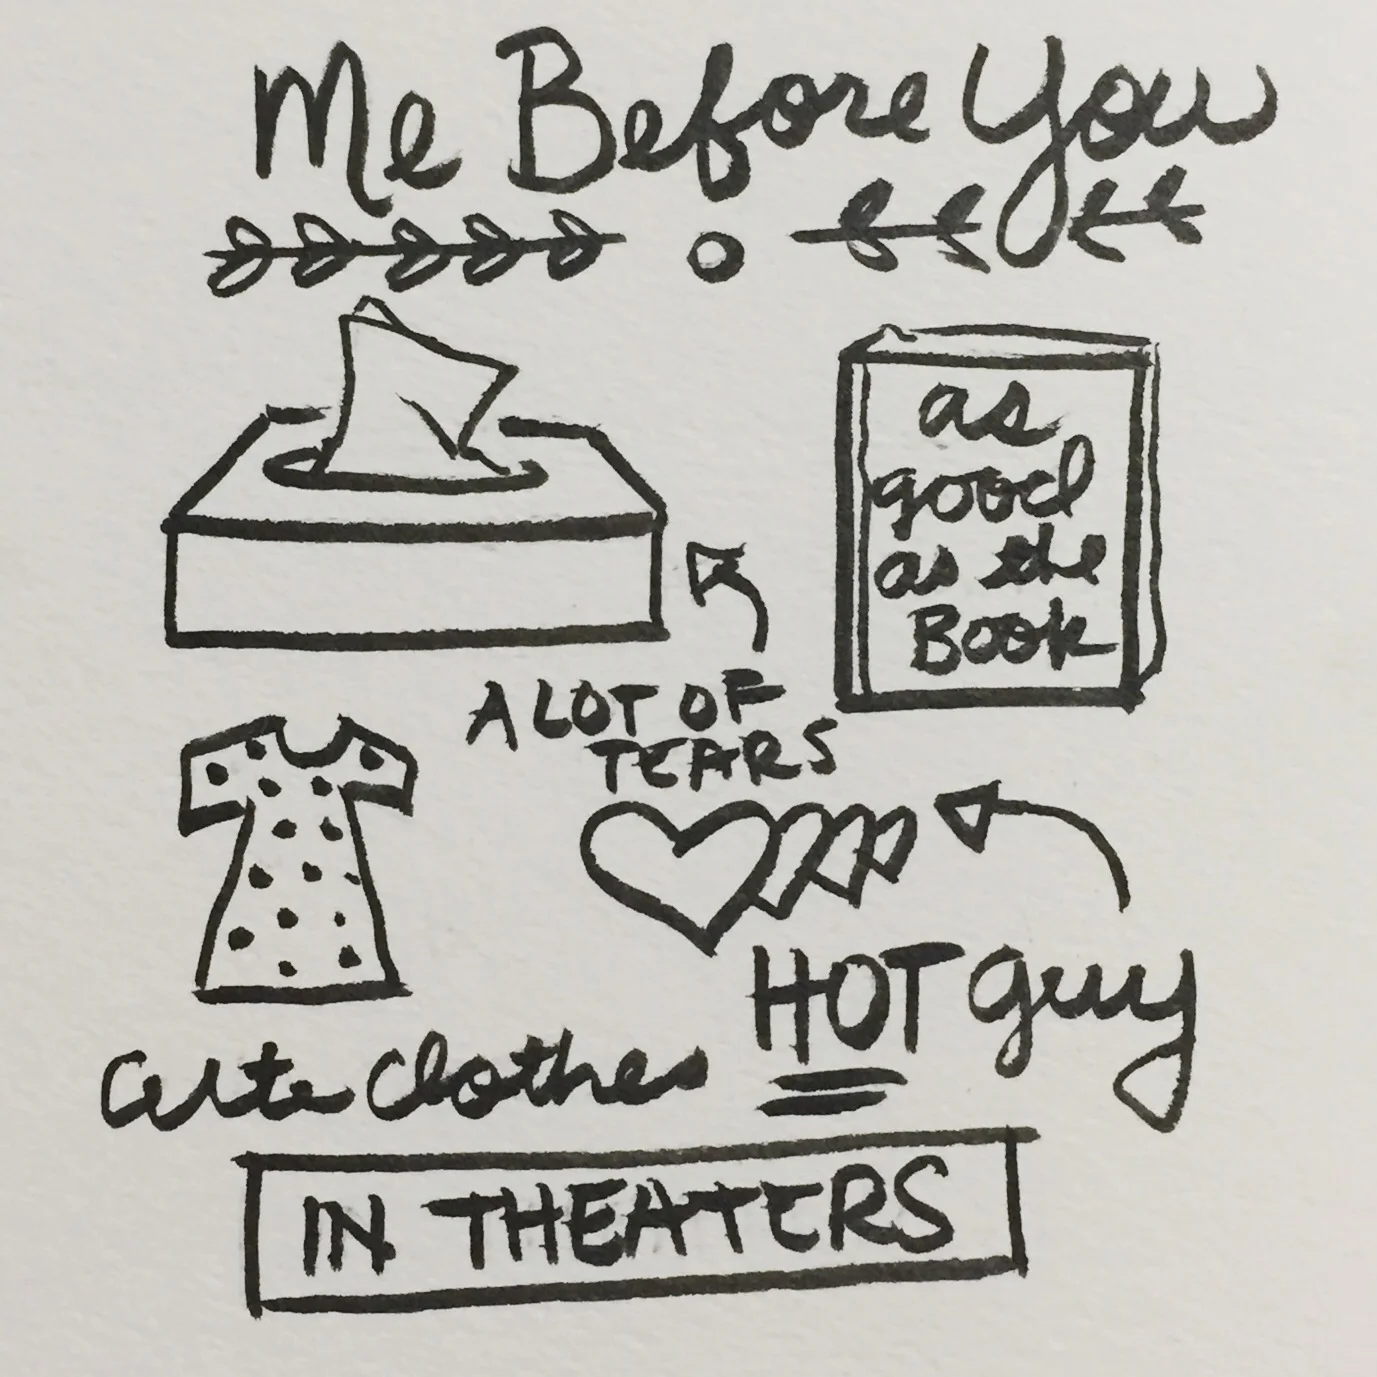 Me Before You
as
good
as the
Book
A LOT OF
TEARS
HOT guy
Cute Clothes
IN THEATERS